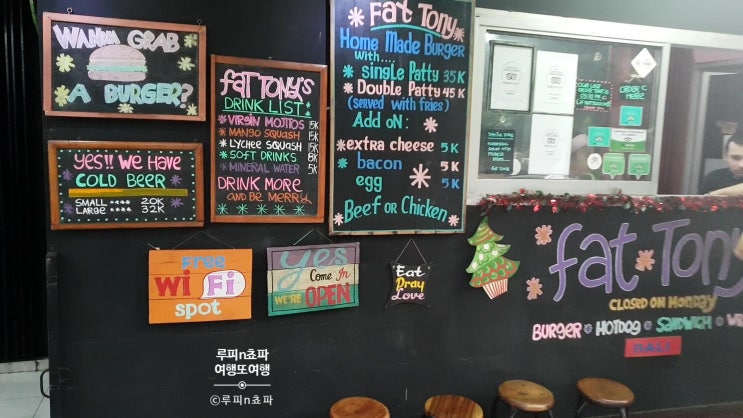 WANNA GRAB
A BURGER?
FAT TONY'S
DRINK LIST:
VIRGIN MOJITOS 15K
MANGO SQUASH 15K
LYCHEE SQUASH 15K
SOFT DRINKS 8K
MINERAL WATER 5K
DRINK MORE
AND BE MERRY
Fat Tony
Home Made Burger
with....
single Patty 35K
Double Patty 45K
(served with fries)
Add ON:
extra cheese 5K
bacon 5K
egg 5K
Beef or Chicken
Yes!! We Have
COLD BEER
SMALL 20K
LARGE 32K
ORDER
HERE
Free
WiFi
spot
yes
Come In
WE'RE OPEN
Eat
Pray
Love
fat Tony
CLOSED ON MONDAY
BURGER HOTDOG SANDWICH
BALI
루피n쵸파
여행또여행
©루피n쵸파